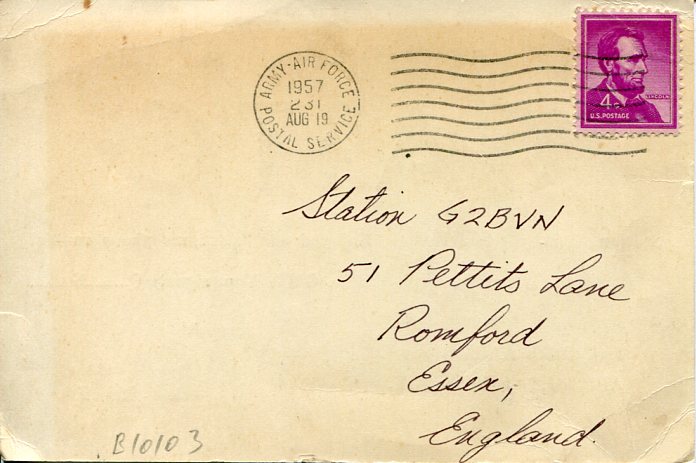 ARMY-AIR FORCE
1957
231
AUG 19
POSTAL SERVICE
LINCOLN
4¢
U.S. POSTAGE
Station G2BVN
51 Pettits Lane
Romford
Essex,
England.
B10103